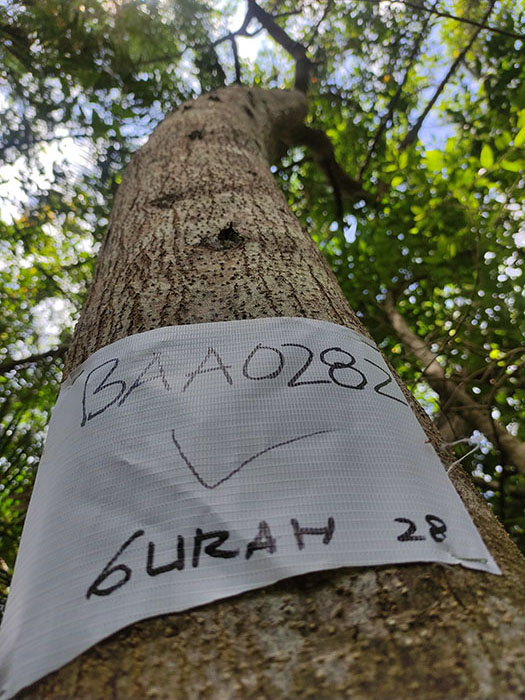 BAA0282
GURAH 28